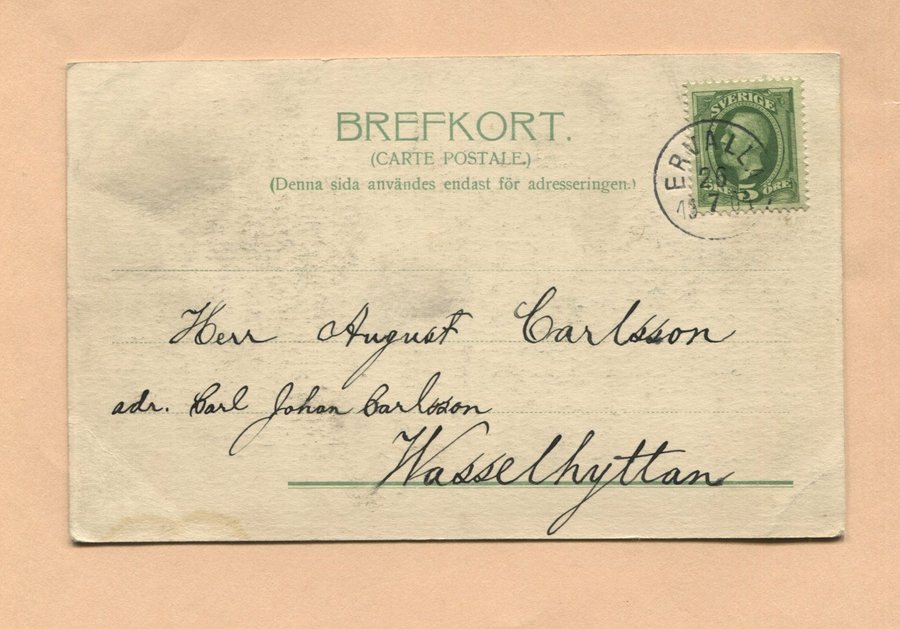 BREFKORT.
(CARTE POSTALE.)
(Denna sida användes endast för adresseringen.)
SVERIGE
5 ÖRE
ERVALLA
26
7
Herr August Carlsson
adr. Carl Johan Carlsson
Wasselhyttan